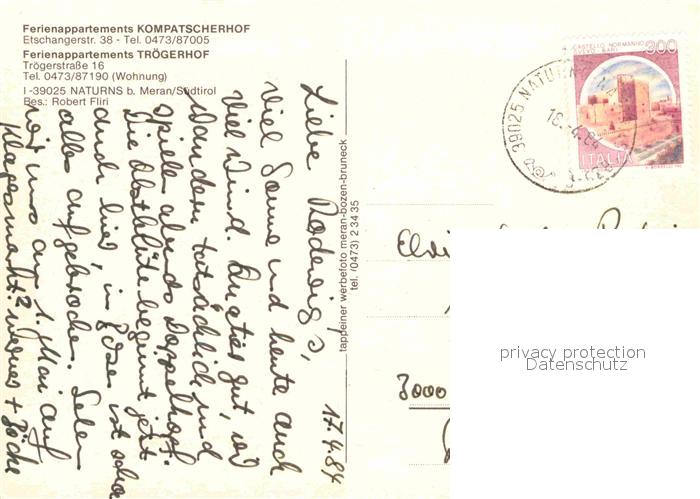 Ferienappartements KOMPATSCHERHOF
Etschangerstr. 38 - Tel. 0473/87005
Ferienappartements TRÖGERHOF
Trögerstraße 16
Tel. 0473/87190 (Wohnung)
I -39025 NATURNS b. Meran/Südtirol
Bes.: Robert Fliri
17.4.84
Liebe
viel Sonne und heute auch
viel Wind. Quartier gut, wir
wandern tatsächlich und
spielen abends Doppelkopf.
Die Obstblüte beginnt jetzt
auch hier, in Bozen ist schon
alles aufgebrochen. Sehen
wir uns am 1. Mai auf
Klagesmarkt? Werner +
tappeiner werbefoto meran-bozen-bruneck
tel. (0473) 2 34 35
CASTELLO NORMANNO
SVEVO BARI
300
ITALIA
39025 NATURNS
18.-4.84
3000
privacy protection
Datenschutz